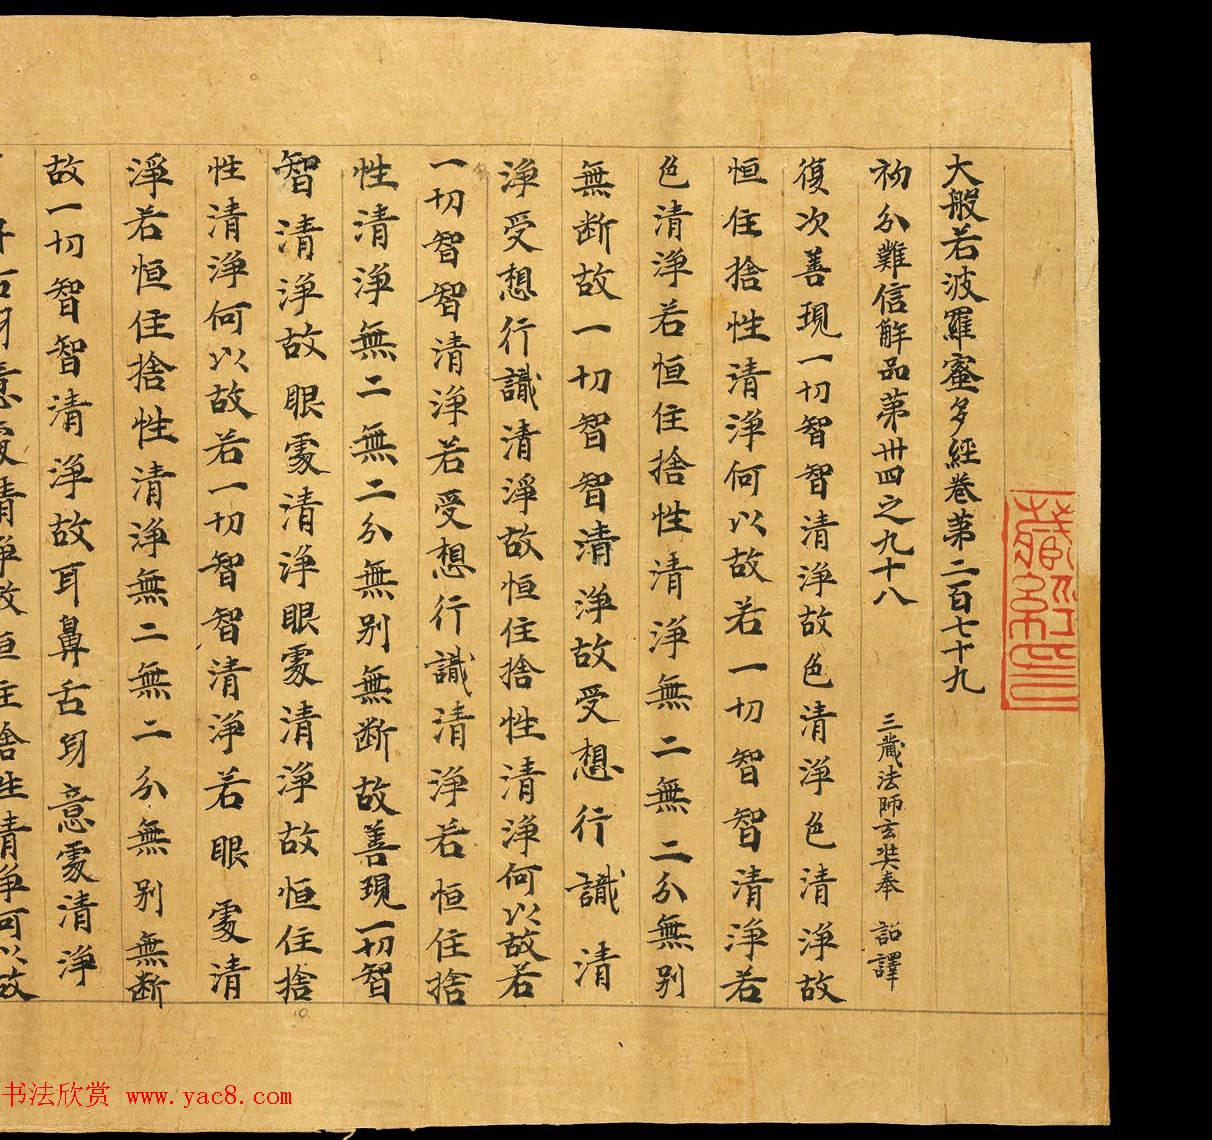 大般若波羅蜜多經卷第二百七十九
初分難信解品第卅四之九十八 三藏法師玄奘奉 詔譯
復次善現一切智智清淨故色清淨色清淨故
恒住捨性清淨何以故若一切智智清淨若
色清淨若恒住捨性清淨無二無二分無別
無斷故一切智智清淨故受想行識清
淨受想行識清淨故恒住捨性清淨何以故若
一切智智清淨若受想行識清淨若恒住捨
性清淨無二無二分無別無斷故善現一切智
智清淨故眼處清淨眼處清淨故恒住捨
性清淨何以故若一切智智清淨若眼處清
淨若恒住捨性清淨無二無二分無別無斷
故一切智智清淨故耳鼻舌身意處清淨
耳鼻舌身意處清淨故恒住捨性清淨何以故
藏經印
书法欣赏 www.yac8.com